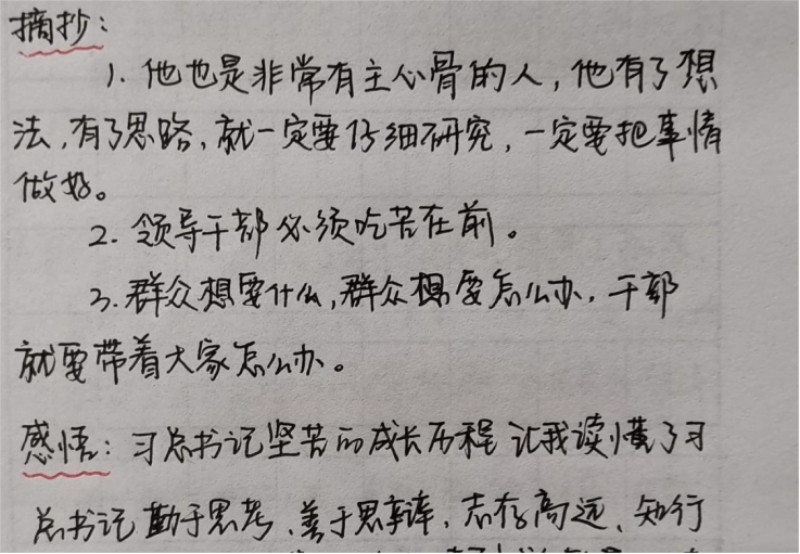 摘抄：
1. 他也是非常有主心骨的人，他有了想
法，有了思路，就一定要仔细研究，一定要把事情
做好。
2. 领导干部必须吃苦在前。
3. 群众想要什么，群众想要怎么办，干部
就要带着大家怎么办。
感悟：习总书记坚苦的成长历程让我读懂了习
总书记勤于思考、善于思辩、志存高远、知行